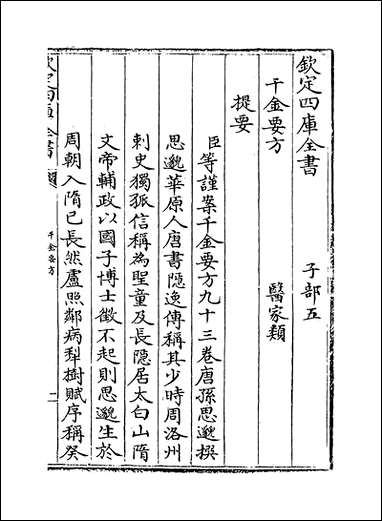 欽定四庫全書　子部五
千金要方　醫家類
提要
臣等謹案千金要方九十三卷唐孫思邈撰
思邈華原人唐書隠逸傳稱其少時周洛州
刺史獨孤信稱為聖童及長隠居太白山隋
文帝輔政以國子博士徵不起則思邈生於
周朝入隋已長然盧照鄰病犁樹賦序稱癸
欽定四庫全書
千金要方